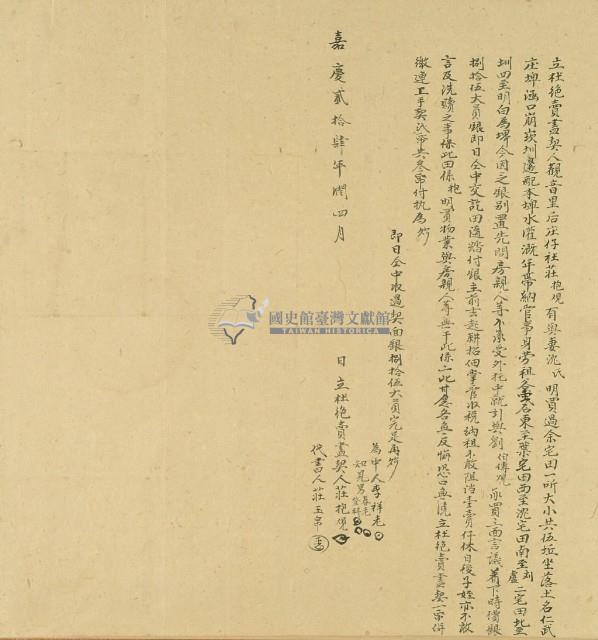 立杜絶賣盡契人觀音里后庄仔社莊抱观有與妻沈氏明買過余宅田一所大小共伍坵坐落土名仁武
庄埤涵口崩崁圳邊配本埤水灌溉年帶納管事身勞租名東至葉宅田西至沈宅田南至刘盧二宅田北至
圳四至明白為界今因乏銀别置先問房親人等不承受外托中就引與劉伯傳观承買三面言議着下時價銀
捌拾伍大員銀即日仝中交訖田隨踏付銀主前去起耕招佃掌管收稅納租不敢阻当壹賣仟休日後子姪亦不敢
言及洗贖之事保此田係抱明買物業與房親人等無干此係二比甘愿各無反悔恐口無憑立杜絶賣盡契一帋併
繳連上手契式帋共叁帋付执為炤
即日仝中收過契面銀捌拾伍大員完足再炤
為中人李祥老
知見男
代書人莊玉帛
日立杜絶賣盡契人莊抱观
嘉慶貳拾肆年閏四月
國史館臺灣文獻館
TAIWAN HISTORICA